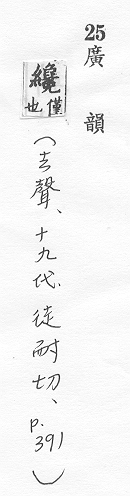 25廣韻
纔僅也
（去聲、十九代、徒耐切、p.391）